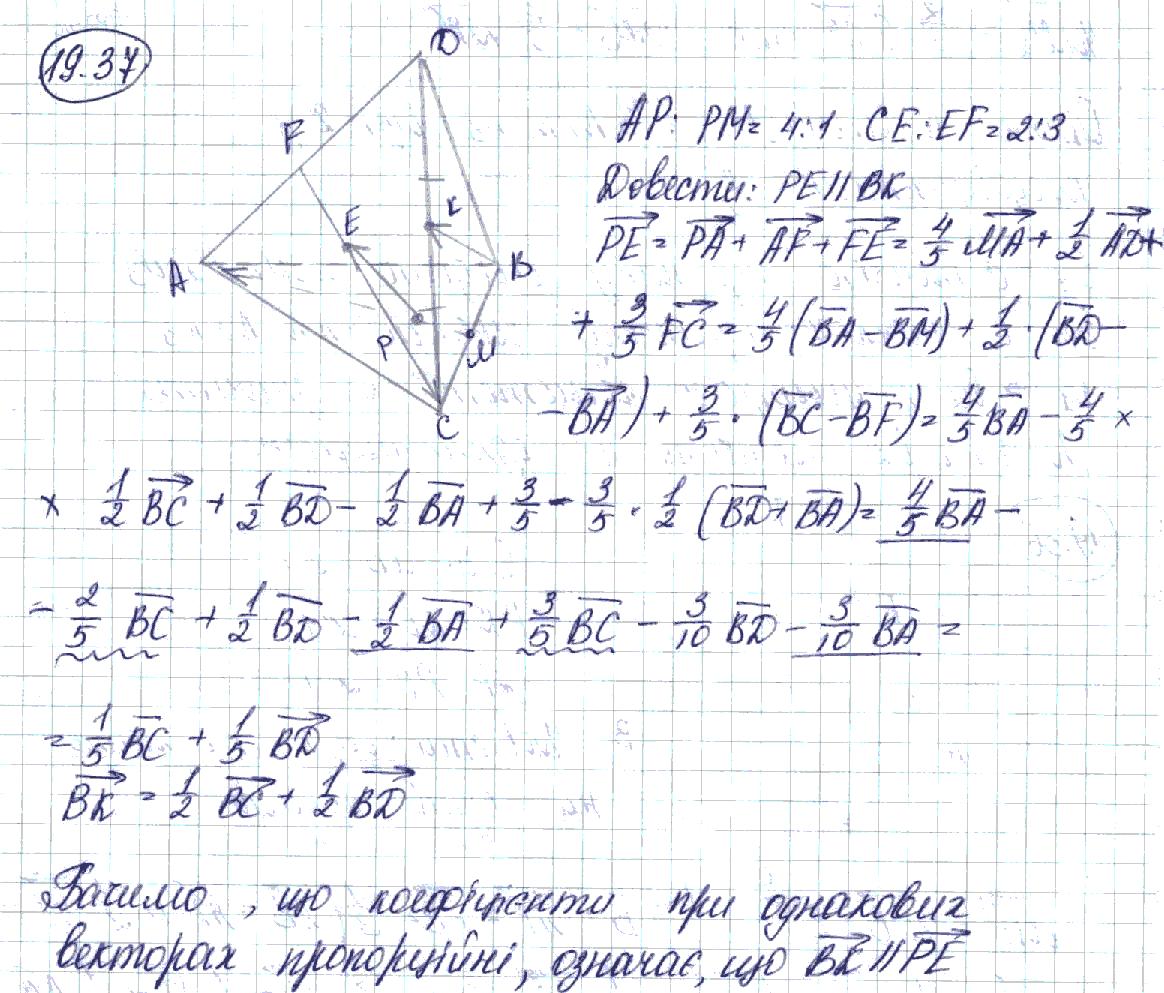 19.37
D
F
E
K
A
B
P
M
C
AP: PM = 4:1 CE:EF = 2:3
Довести: PE || BK
PE = PA + AF + FE = 4/5 MA + 1/2 AD +
+ 3/5 FC = 4/5 (BA − BM) + 1/2 · (BD −
− BA) + 3/5 · (BC − BF) = 4/5 BA − 4/5 ×
× 1/2 BC + 1/2 BD − 1/2 BA + 3/5 − 3/5 · 1/2 (BD + BA) = 4/5 BA −
− 2/5 BC + 1/2 BD − 1/2 BA + 3/5 BC − 3/10 BD − 3/10 BA =
= 1/5 BC + 1/5 BD
BK = 1/2 BC + 1/2 BD
Бачимо, що коефіцієнти при однакових
векторах пропорційні, означає, що BK || PE